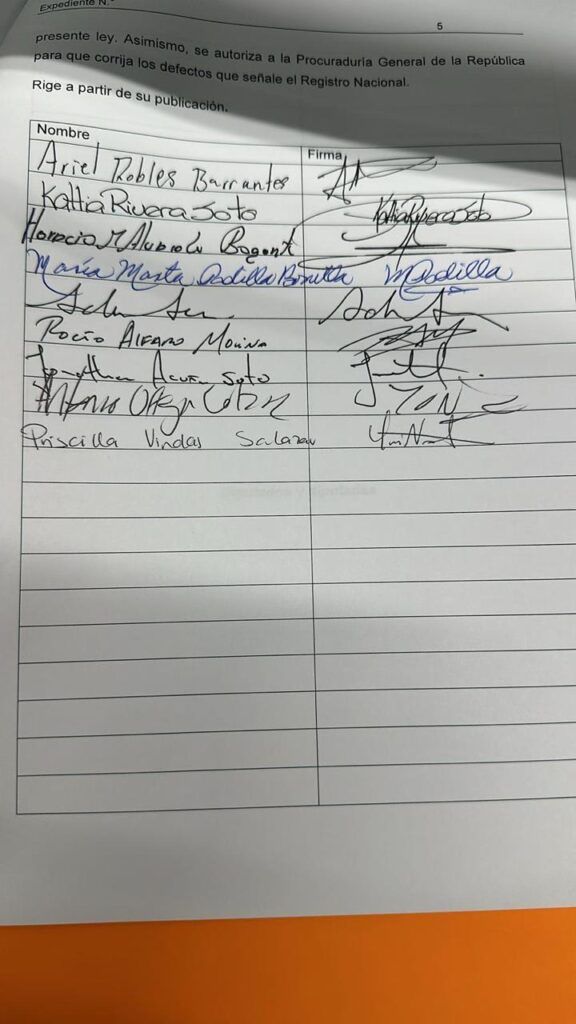 Expediente N.°
5
presente ley. Asimismo, se autoriza a la Procuraduría General de la República
para que corrija los defectos que señale el Registro Nacional.
Rige a partir de su publicación.
Nombre Firma
Ariel Robles Barrantes
Kattia Rivera Soto Kattia Rivera Soto
Horacio M
María Marta Padilla Bonilla MPadilla
Rocío Alfaro Molina
Jonathan Acuña Soto
Antonio Ortega
Priscilla Vindas Salazar